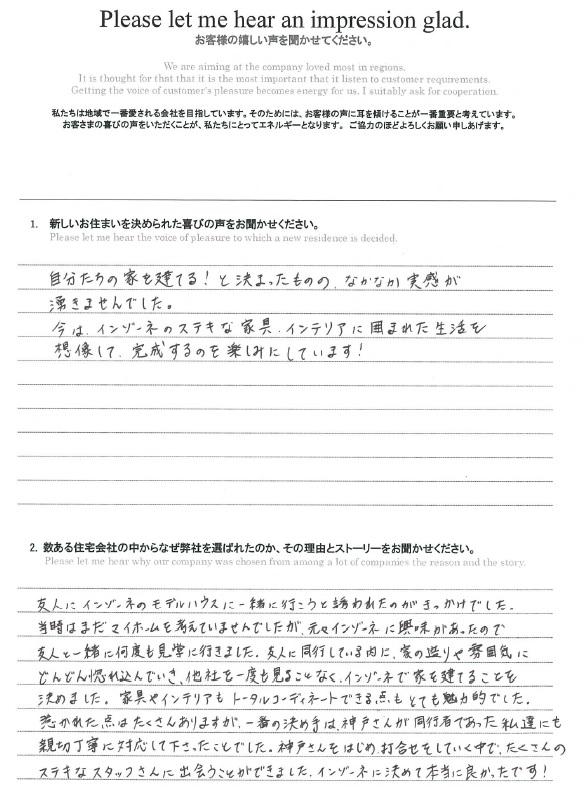 Please let me hear an impression glad.
お客様の嬉しい声を聞かせてください。
We are aiming at the company loved most in regions.
It is thought for that that it is the most important that it listen to customer requirements.
Getting the voice of customer's pleasure becomes energy for us. I suitably ask for cooperation.
私たちは地域で一番愛される会社を目指しています。そのためには、お客様の声に耳を傾けることが一番重要と考えています。
お客さまの喜びの声をいただくことが、私たちにとってエネルギーとなります。ご協力のほどよろしくお願い申しあげます。
1. 新しいお住まいを決められた喜びの声をお聞かせください。
Please let me hear the voice of pleasure to which a new residence is decided.
自分たちの家を建てる!と決まったものの、なかなか実感が
湧きませんでした。
今は、インゾーネのステキな家具、インテリアに囲まれた生活を
想像して、完成するのを楽しみにしています!
2. 数ある住宅会社の中からなぜ弊社を選ばれたのか、その理由とストーリーをお聞かせください。
Please let me hear why our company was chosen from among a lot of companies the reason and the story.
友人にインゾーネのモデルハウスに一緒に行こうと誘われたのがきっかけでした。
当時はまだマイホームを考えていませんでしたが、元々インゾーネに興味があったので
友人と一緒に何度も見学に行きました。友人に同行している内に、家の造りや雰囲気に
どんどん惚れ込んでいき、他社を一度も見ることなく、インゾーネで家を建てることを
決めました。家具やインテリアもトータルコーディネートできる点もとても魅力的でした。
惹かれた点はたくさんありますが、一番の決め手は、神戸さんが同行者であった私達にも
親切丁寧に対応して下さったことでした。神戸さんをはじめ、打合せをしていく中で、たくさんの
ステキなスタッフさんに出会うことができました。インゾーネに決めて本当に良かったです!